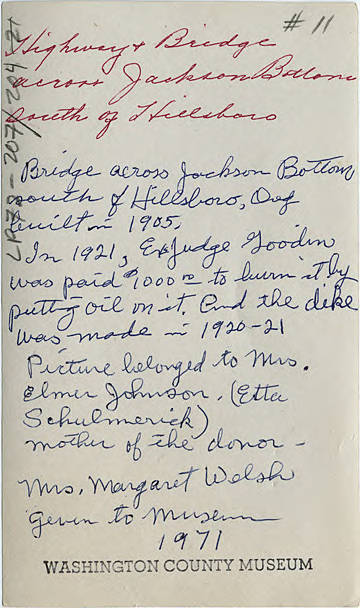 # 11
Highway & Bridge
across Jackson Bottom
south of Hillsboro
Bridge across Jackson Bottom
south of Hillsboro, Oreg
built in 1905.
In 1921, Ex Judge Goodin
was paid $1000 00 to burn it by
putting oil on it. And the dike
was made in 1920-21
Picture belonged to Mrs.
Elmer Johnson. (Etta
Schulmerick)
mother of the donor -
Mrs. Margaret Welsh
Geven to Museum
1971
WASHINGTON COUNTY MUSEUM